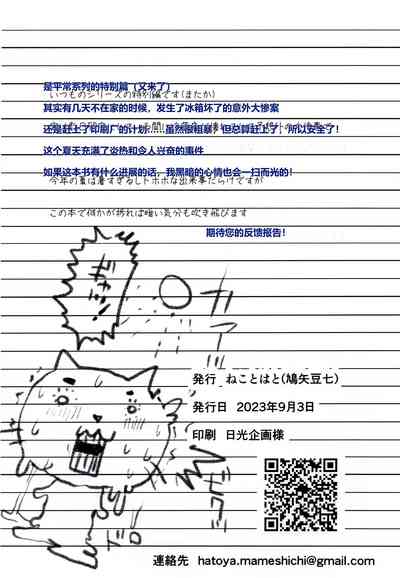 是平常系列的特别篇（又来了）
いつものシリーズの特別編です(またか)
其实有几天不在家的时候，发生了冰箱坏了的意外大惨案
还是赶上了印刷厂的计划……虽然很粗暴，但总算赶上了，所以安全了！
这个夏天充满了炎热和令人兴奋的事件
如果这本书有什么进展的话，我黑暗的心情也会一扫而光的！
今年の夏は暑すぎるしトホホな出来事だらけですが
この本で何かが捗れば暗い気分も吹き飛びます
期待您的反馈报告！
発行 ねことはと(鳩矢豆七)
発行日 2023年9月3日
印刷 日光企画様
連絡先 hatoya.mameshichi@gmail.com